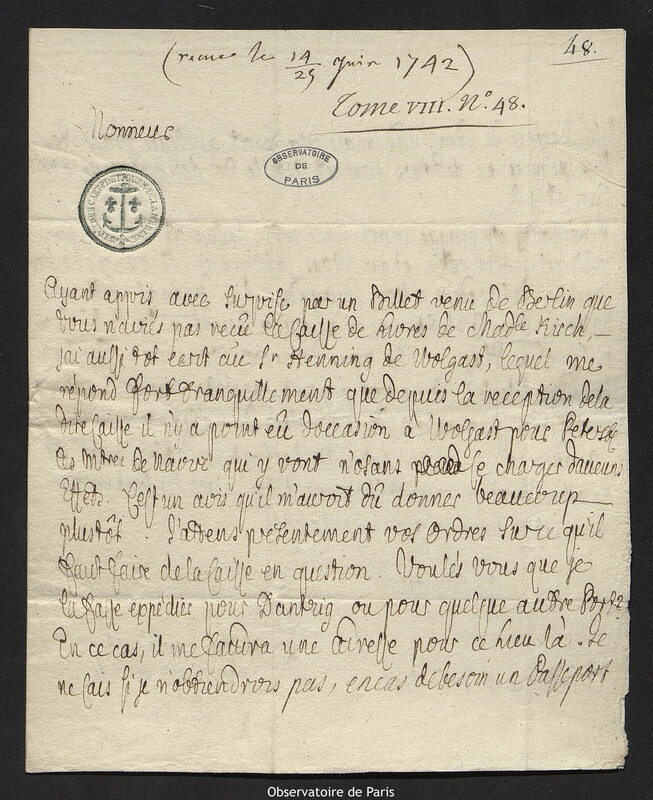 48.
(recue le 14/25 Juin 1742)
Tome VIII. N.° 48.
Monsieur
OBSERVATOIRE
DE
PARIS
Ayant appris avec surprise par un Billet venu de Berlin que
vous n'aviés pas recû la Caisse de Livres de Madle Kirch,
j'ai aussi tot ecrit au Sr Henning de Wolgast, lequel me
répond fort tranquillement que depuis la reception de la
dite Caisse il n'y a point eû d'occasion à Wolgast pour Petersb
les Mtres de Navire qui y vont n'osans se charger d'aucuns
Effets. C'est un avis qu'il m'auroit dû donner beaucoup
plustôt. J'attens presentement vos Ordres sur ce qu'il
faut faire de la Caisse en question. Voulés vous que je
la fasse expédier pour Dantzig ou pour quelque autre Port?
En ce cas, il me faudra une Adresse pour ce lieu là. Je
ne sais si je n'obtiendrois pas, en cas de besoin un Passeport
Observatoire de Paris